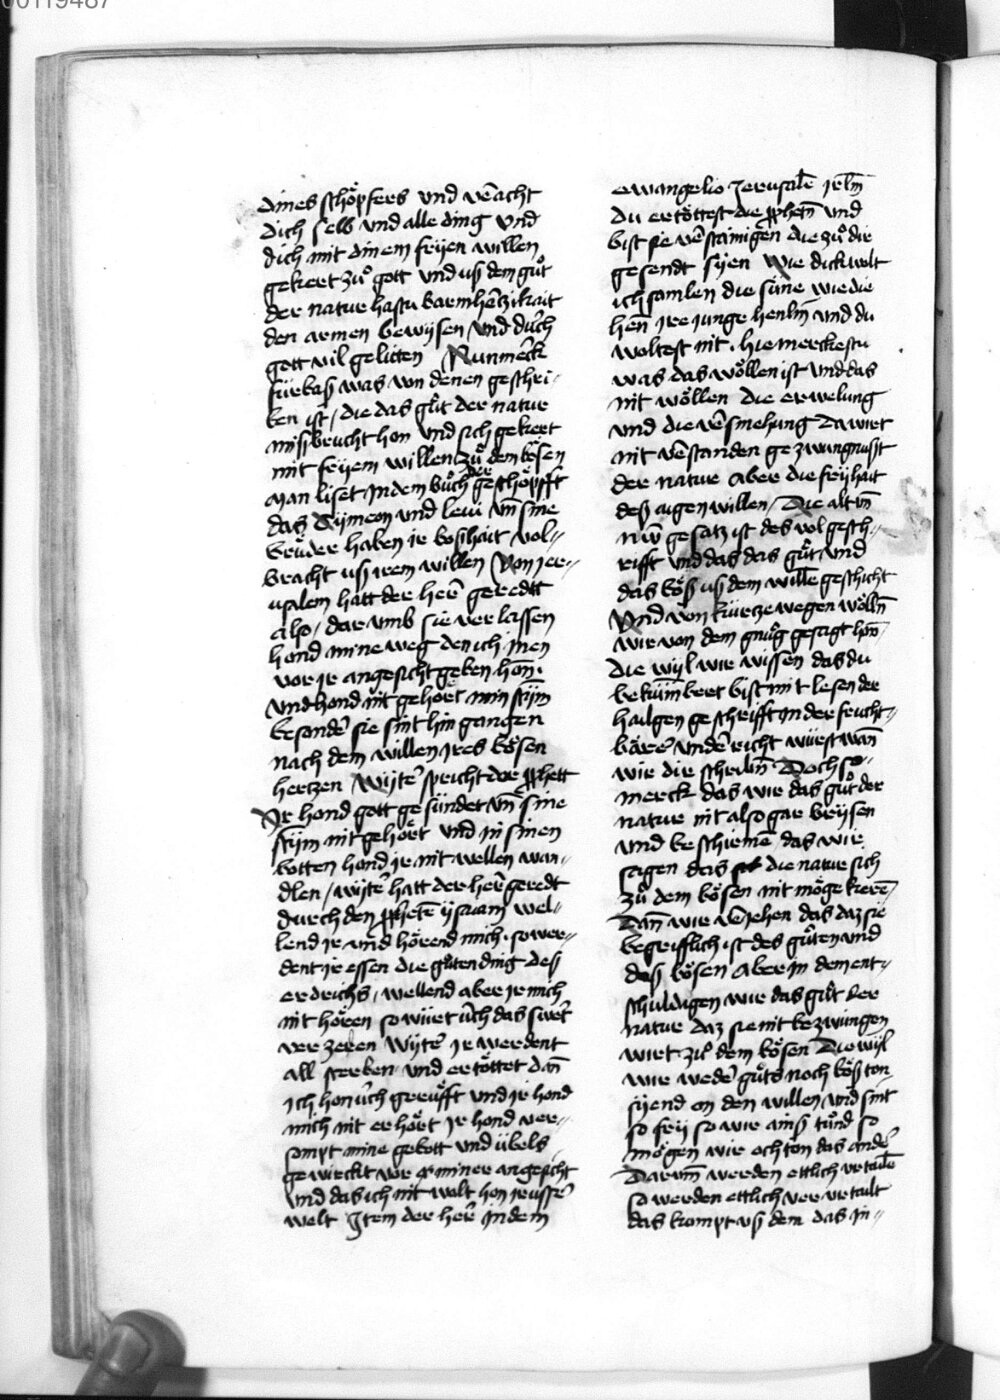 00119487
dines schöpfers vnd veracht
dich selb vnd alle ding vnd
dich mit dinem frijen willen
gekert zuͦ gott vnd usß dem guͦt
der natur hastu barmhertzikait
den armen bewijsen vnd durch
gott vil gelitten Nun merck
fürbaß was von denen geschri-
ben ist / die das guͦt der natur
missbrucht hon vnd sich gekert
mit frijem willen zuͦ dem bösen
Man liset in dem buͦch der geschöpfft
das Sijmeon vnd leui vnd sine
bruͤder haben ir boßhait vol-
bracht usß irem willen Von jer-
usalem hatt der herr geredtt
also / dar vmb sie verlassen
hond mine weg den ich inen
vor ir angesicht geben hon
vnd hond nit gehört min stijm
besonder sie sint hin gangen
nach dem willen ires bösen
hertzen / wijter spricht der prophett
Ir hond gott gesündet vnd sine
stijm nit gehört vnd in sinen
botten hond ir nit wellen wan-
dlen / wijter hatt der herr geredt
durch den propheten ijsaiam wel-
lend ir vnd hörend mich so wer-
dent ir essen die guͦten ding deß
erdrichs / wellend aber ir mich
nit hören so würt üch das swert
verzeren wijter ir werdent
all sterben vnd ertöttet dan
ich hon üch gerüfft vnd ir hond
mich nit erhört ir hond ver-
sompt mine gebott vnd übels
gewirckt vor miner angesicht
vnd das ich nit wolt hon ir usser
welt Item der herr in dem
ewangelio Jerusalem jerlm
du ertöttest die propheten vnd
bist sie versteinigen die zuͦ dir
gesendt sijen Wie dick wolt
ich samlen die süne wie die
hen ire junge henlin vnd du
woltest nit / hie merckestu
was das wöllen ist vnd das
nit wöllen die erwelung
vnd die versmehung da wirt
nit verstanden gezwungnusst
der natur aber die frijhait
deß aigen willen / Die alt vnd
nuw gesatz ist des vol gesch-
rifft vnd das das guͦt vnd
das böß usß dem wille geschicht
Vnd von kürtze wegen wölln
wir von dem gnuͦg gesagt hon
die wijl wir wissen das du
bekümbert bist mit lesen der
hailgen geschrifft in der frucht-
bäre vnderricht würst wan
wir die schribn Doch so
merck das wir das guͦt der
natur nit also gar brijsen
vnd beschirmen das wir
sagen das die natur sich
zuͦ dem bösen nit möge kieren
Dan wir verjehen das daz sie
begrifflich ist des guͦten vnd
deß bösen Aber in dem ent-
schuldigen wir das guͦt der
natur daz sie nit bezwungen
wirt zuͦ dem bösen Die wijl
wir weder guͦts noch böß ton
sijend on den willen vnd sint
so frij so wir ains tuͦnd so
mögen wir och ton das ander
Darum werden ettlich vrtaile
so werden ettlich ver vrtailt
das kompt usß dem das in-